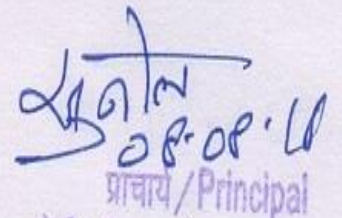 सुनील
08.08.18
प्राचार्य/Principal